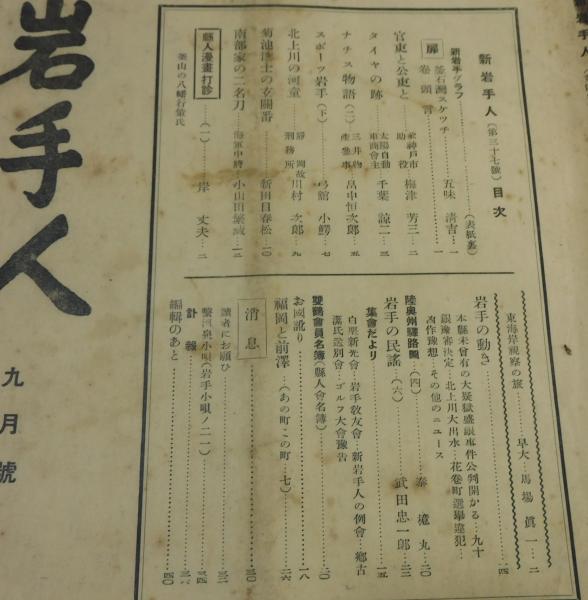 岩手人
九月號
新岩手人（第三十七號）目次
新岩手グラフ（表紙裏）
扉 釜石灣スケッチ 五味清吉 一
卷頭言 一
官東と公東と 前神戸市助役 梅津芳三 二
タイヤの跡 太陽自動車商會主 千葉諒二 三
ナチス物語（二） 三井物產參事 畠中恒次郎 五
スポーツ岩手（下） 弓館小鰐 七
北上川の河童 刑務所 川村次郎 九
菊池博士の玄關番 新田目春松 一〇
南部家の三名刀 海軍中將 小山田繁藏 一二
縣人漫畫打診（一） 岸丈夫 二
釜山の八幡行榮氏
東海岸視察の旅 早大 馬場眞一 二
岩手の動き 一四
本縣未曾有の大疑獄盛銀事件公判開かる…九十
銀豫審決定…北上川大出水…花卷町選擧違犯…
凶作豫想…その他のニュース
陸奥州驛路圖（四） 泰 二〇
岩手の民謠（六） 武田忠一郎 二三
集會だより 一五
白堊新光會…岩手敎友會…新岩手人の例會…鄕古
潔氏送別會…ゴルフ大會豫告
雙鶴會員名簿（縣人會名簿） 二〇
お國訛り 一八
福岡と前澤（あの町この町 七） 二六
消息 三〇
讀者にお願ひ 三二
繫溫泉小唄（岩手小唄ノ二一） 三四
訃報 三六
編輯のあと 四〇